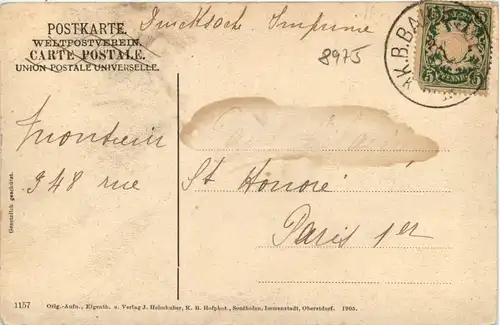 POSTKARTE.
WELTPOSTVEREIN.
CARTE POSTALE.
UNION POSTALE UNIVERSELLE.
Drucksache Imprimé
8975
K.B.BA
5 PFENNIG 5
348 rue
St Honoré
Paris 1er
Gesetzlich geschützt.
1157 Orig.-Aufn., Eigenth. u. Verlag J. Heimhuber, K. B. Hofphot., Sonthofen, Immenstadt, Oberstdorf. 1905.